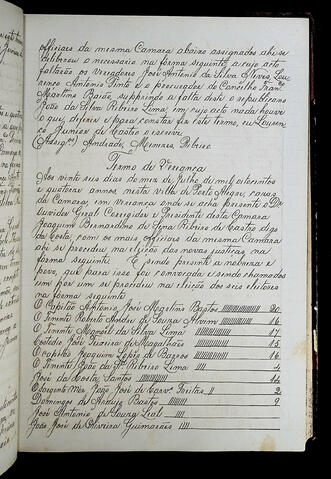 officiaes da mesma Camara abaixo assignados ahi se
deliberou o necessario na forma seguinte, a cujo acto
faltarão os Vereadores José Antonio da Silva Neves Lou-
renço Antonio Pinto e o procurador do Concelho Fran.co
Martins Baião, supprindo a falta deste o republicano
João da Silva Ribeiro Lima, em cujo acto nada houve
o que deferir e para constar fiz este termo, eu Louren-
ço Junior de Castro o escrevi
Andrade, Menezes, Ribeiro.
Termo de Vereança
Aos vinte seis dias do mez de Julho de mil oitocentos
e quatorze annos nesta villa de Porto Alegre, casas
da Camara, em vereança onde se acha presente o Dr.
Ouvidor Geral Corregidor e Presidente desta Camara
Joaquim Bernardino de Senna Ribeiro da Costa, digo
da Costa, com os mais officiaes da mesma Camara
ahi se procedeu na eleição das novas justiças na
forma seguinte. E sendo presente a nobreza e
povo, que para isso foi convocada e sendo chamados
um por um se procedeu na eleição dos seis eleitores
na forma seguinte
O Capitão Antonio José Bastos 20
O Tenente de Souza Alvim 16
O Tenente Manoel da Silva Lima 17
José Teixeira de Magalhães 15
O capitão Joaquim Lopes de Barros 16
O Tenente João da S.a Ribeiro Lima 4
José da Costa Santos 14
O Sargento Mór João José de Freitas 2
Domingos de Araujo Bastos 9
José Antonio de Leal
João José de Oliveira Guimarães